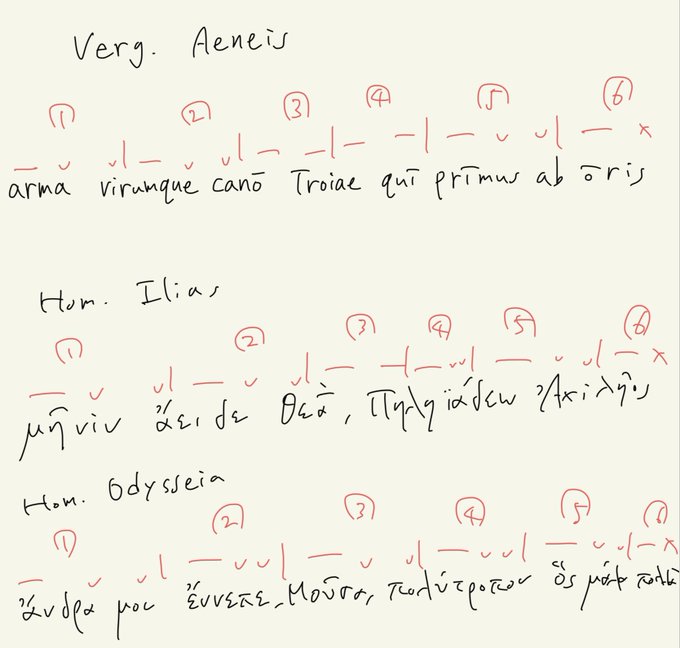 Verg. Aeneis
① ② ③ ④ ⑤ ⑥
— ᴗ ᴗ| — ᴗ ᴗ| — —| — —| — ᴗ ᴗ| — ×
arma virumque canō Troiae quī prīmus ab ōris
Hom. Ilias
① ② ③ ④ ⑤ ⑥
— ᴗ ᴗ| — ᴗ ᴗ| — —| — ᴗᴗ| — ᴗ ᴗ| — ×
μῆνιν ἄειδε θεὰ, Πηληϊάδεω Ἀχιλῆος
Hom. Odysseia
① ② ③ ④ ⑤ ⑥
— ᴗ ᴗ| — ᴗ ᴗ| — ᴗ ᴗ| — ᴗ ᴗ| — ᴗ ᴗ| — ×
ἄνδρα μου ἔννεπε, Μοῦσα, πολύτροπον ὃς μάλα